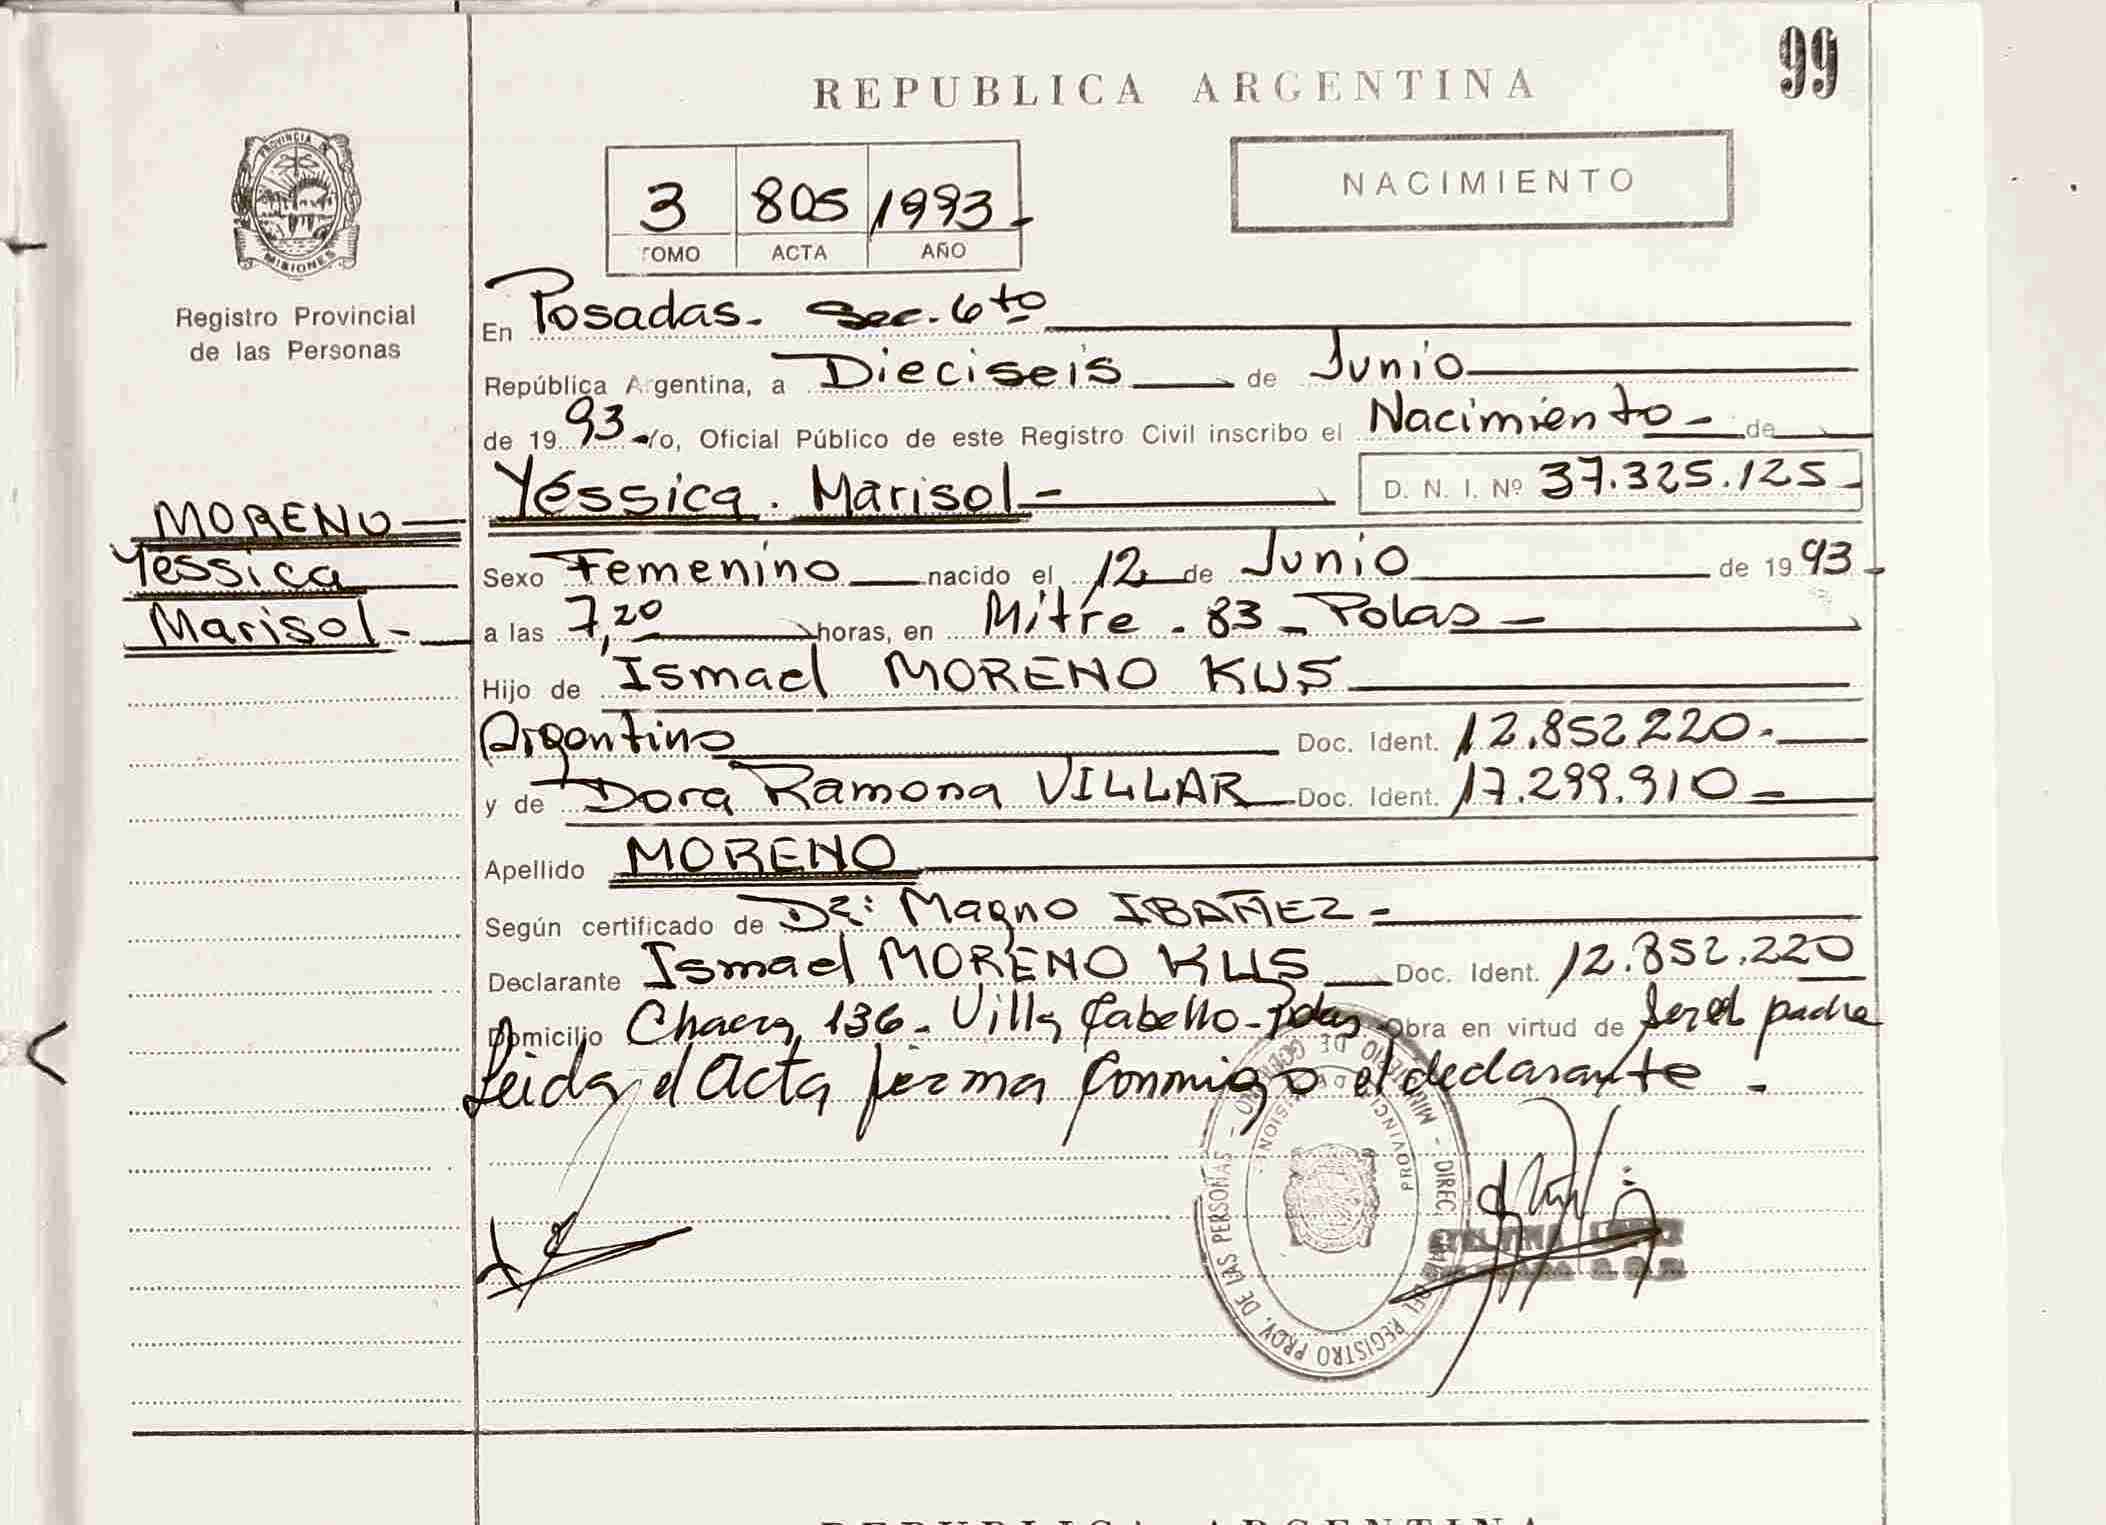 99
REPUBLICA ARGENTINA
PROVINCIA
MISIONES
Registro Provincial
de las Personas
3 805 1993-
TOMO ACTA AÑO
NACIMIENTO
En Posadas. Sec. 6to
República Argentina, a Dieciseis de Junio
de 1993 yo, Oficial Público de este Registro Civil inscribo el Nacimiento - de
Yéssica. Marisol - D. N. I. Nº 37.325.125-
MORENO
Yéssica
Marisol -
Sexo Femenino nacido el 12 de Junio de 1993-
a las 7,20 horas, en Mitre - 83 - Pdas -
Hijo de Ismael MORENO KUS
Argentino Doc. Ident. 12.852.220.-
y de Dora Ramona VILLAR Doc. Ident. 17.299.910-
Apellido MORENO
Según certificado de Dr: Magno IBAÑEZ -
Declarante Ismael MORENO KUS Doc. Ident. 12.852.220
Domicilio 136 - Villa Cabello - Pdas Obra en virtud de ser el padre
Leida el Acta firma conmigo el declarante -
REGISTRO PROV. DE LAS PERSONAS - MINISTERIO DE GOBIERNO
PROVINCIA DE MISIONES
REPUBLICA ARGENTINA